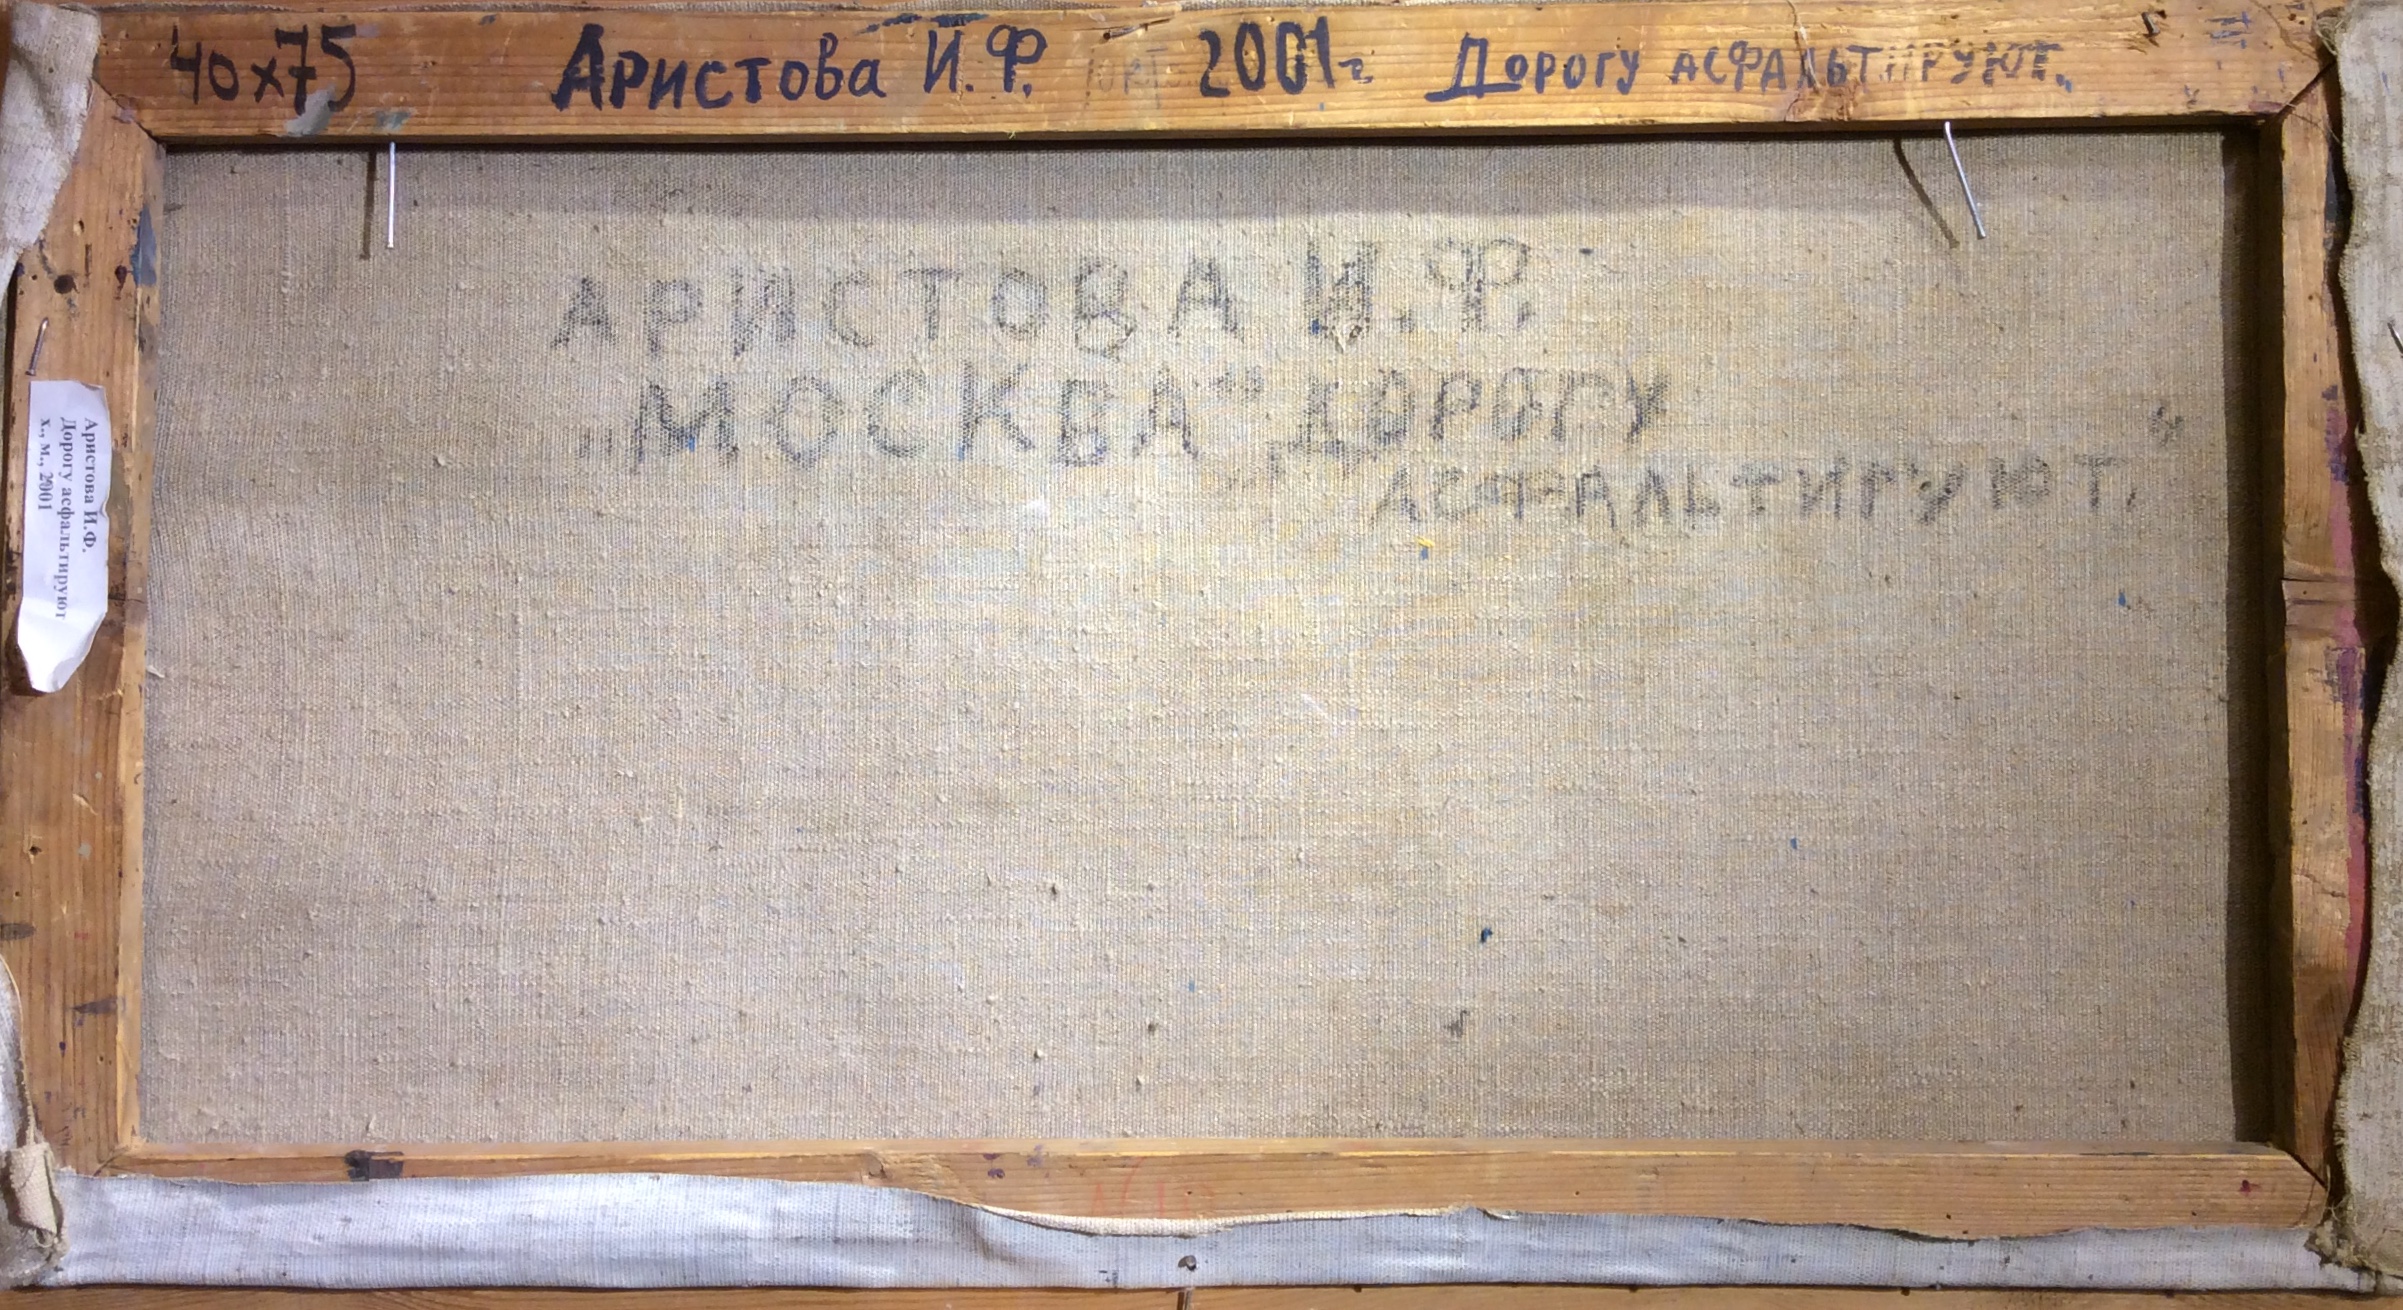 40х75 Аристова И.Ф. 2001г Дорогу асфальтируют.
АРИСТОВА И.Ф.
„МОСКВА" ДОРОГУ
АСФАЛЬТИРУЮТ."
Аристова И.Ф.
Дорогу асфальтируют
х., м., 2001